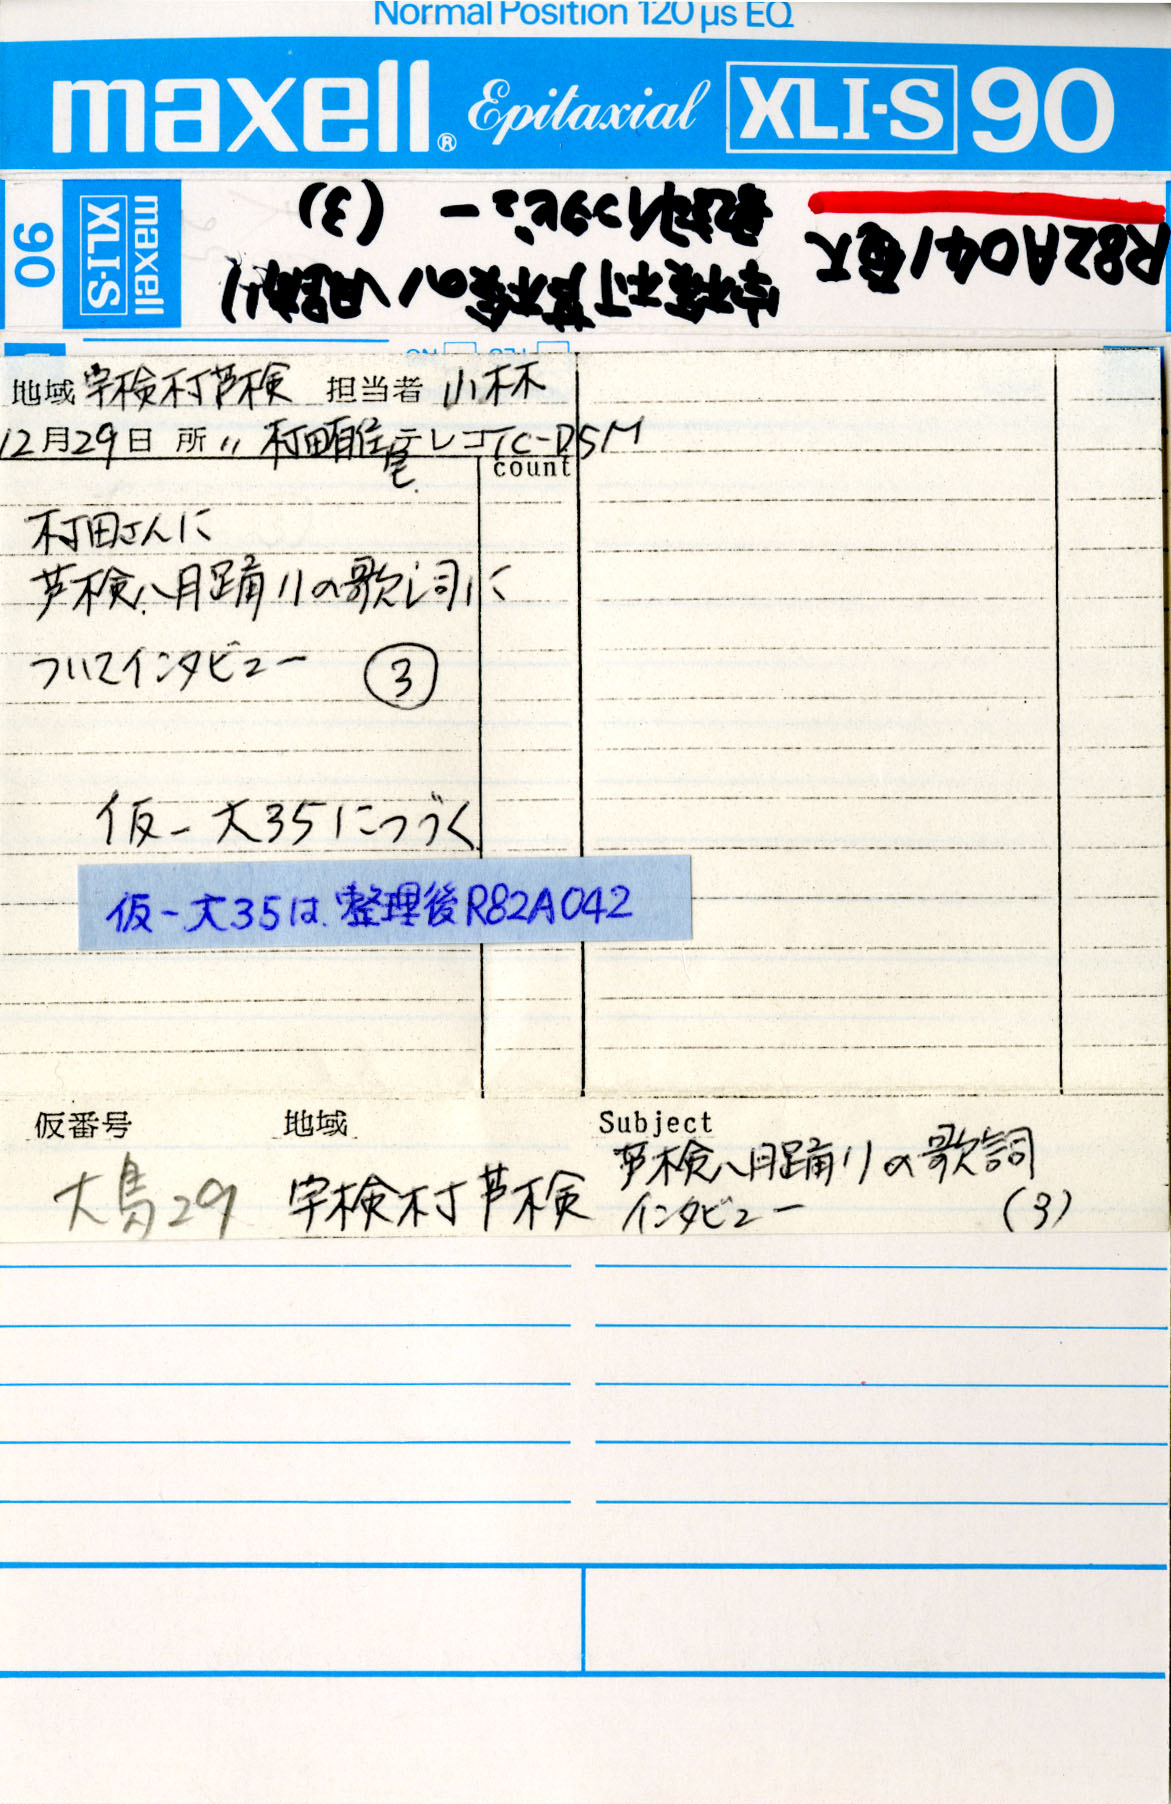 Normal Position 120 µs EQ
maxell® Epitaxial XLI-S 90
R82A041 奄大
宇検村芦検の八月踊り
歌詞インタビュー (3)
maxell
XLI-S
90
地域 宇検村芦検 担当者 小林
12月29日 所 〃 村田宅 テレコ TC-D5M
count
村田さんに
芦検八月踊りの歌詞に
ついてインタビュー ③
仮-大35につづく
仮-大35は整理後R82A042
仮番号 地域 Subject
大島29 宇検村芦検 芦検八月踊りの歌詞
インタビュー (3)